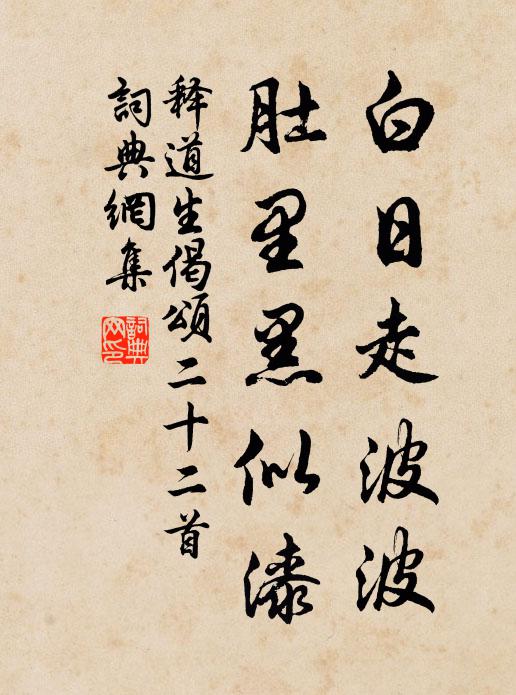 白日走波波
肚里黑似漆
释道生偈頌二十二首
詞典網集
詞典網印